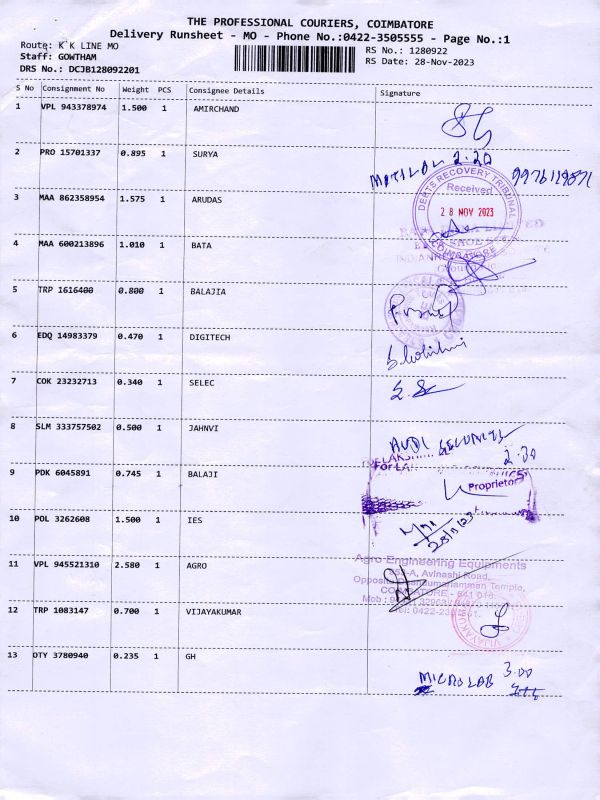 THE PROFESSIONAL COURIERS, COIMBATORE
Delivery Runsheet - MO - Phone No.:0422-3505555 - Page No.:1
Route: K K LINE MO
Staff: GOWTHAM
DRS No.: DCJB128092201
RS No.: 1280922
RS Date: 28-Nov-2023
S No Consignment No Weight PCS Consignee Details Signature
1 VPL 943378974 1.500 1 AMIRCHAND
2 PRO 15701337 0.895 1 SURYA
MOTILAL 2.20
3 MAA 862358954 1.575 1 ARUDAS
DEBTS RECOVERY TRIBUNAL
Received
28 NOV 2023
COIMBATORE
4 MAA 600213896 1.010 1 BATA
5 TRP 1616400 0.800 1 BALAJIA
6 EDQ 14983379 0.470 1 DIGITECH
7 COK 23232713 0.340 1 SELEC
8 SLM 333757502 0.500 1 JAHNVI
2.20
9 PDK 6045891 0.745 1 BALAJI
Proprietor
10 POL 3262608 1.500 1 IES
11 VPL 945521310 2.580 1 AGRO
Agro Engineering Equipments
Avinashi Road,
12 TRP 1083147 0.700 1 VIJAYAKUMAR
13 OTY 3780940 0.235 1 GH
MICROLAB 3.00